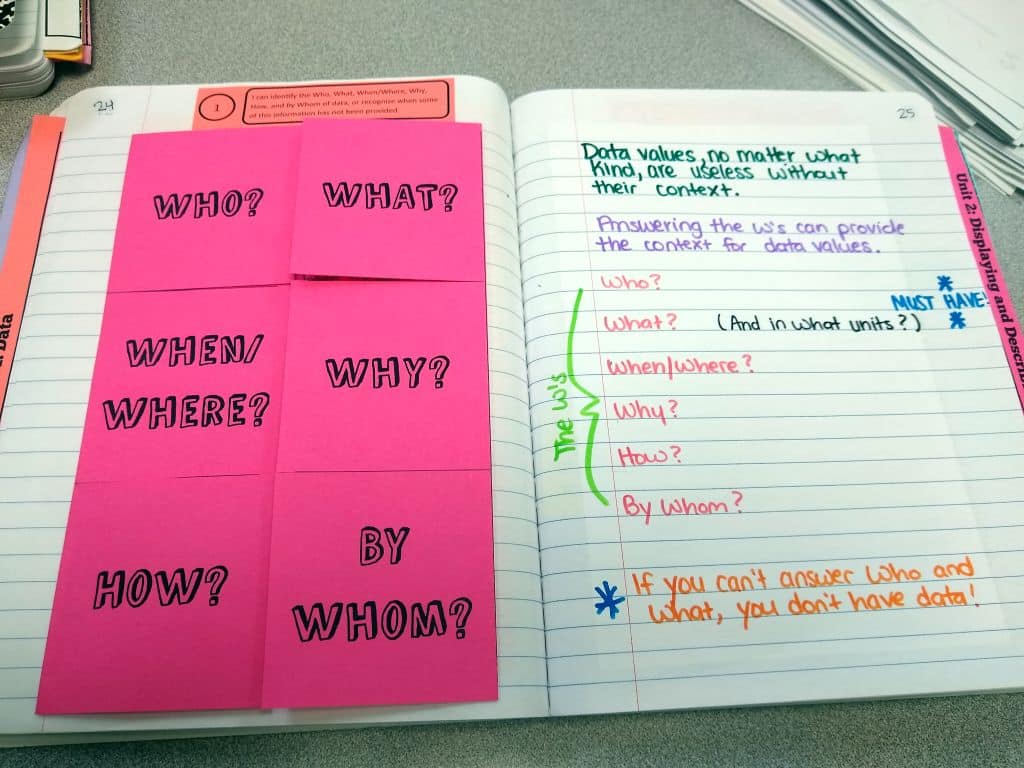 24
1
I can identify the Who, What, When/Where, Why,
How, and by Whom of data, or recognize when some
of this information has not been provided.
WHO?
WHAT?
WHEN/
WHERE?
WHY?
HOW?
BY
WHOM?
Data
25
Data values, no matter what
kind, are useless without
their context.
Answering the W's can provide
the context for data values.
Who?
What? (And in what units?)
* MUST HAVE! *
When/Where?
Why?
How?
By Whom?
The W's
* If you can't answer who and
what, you don't have data!
Unit 2: Displaying and